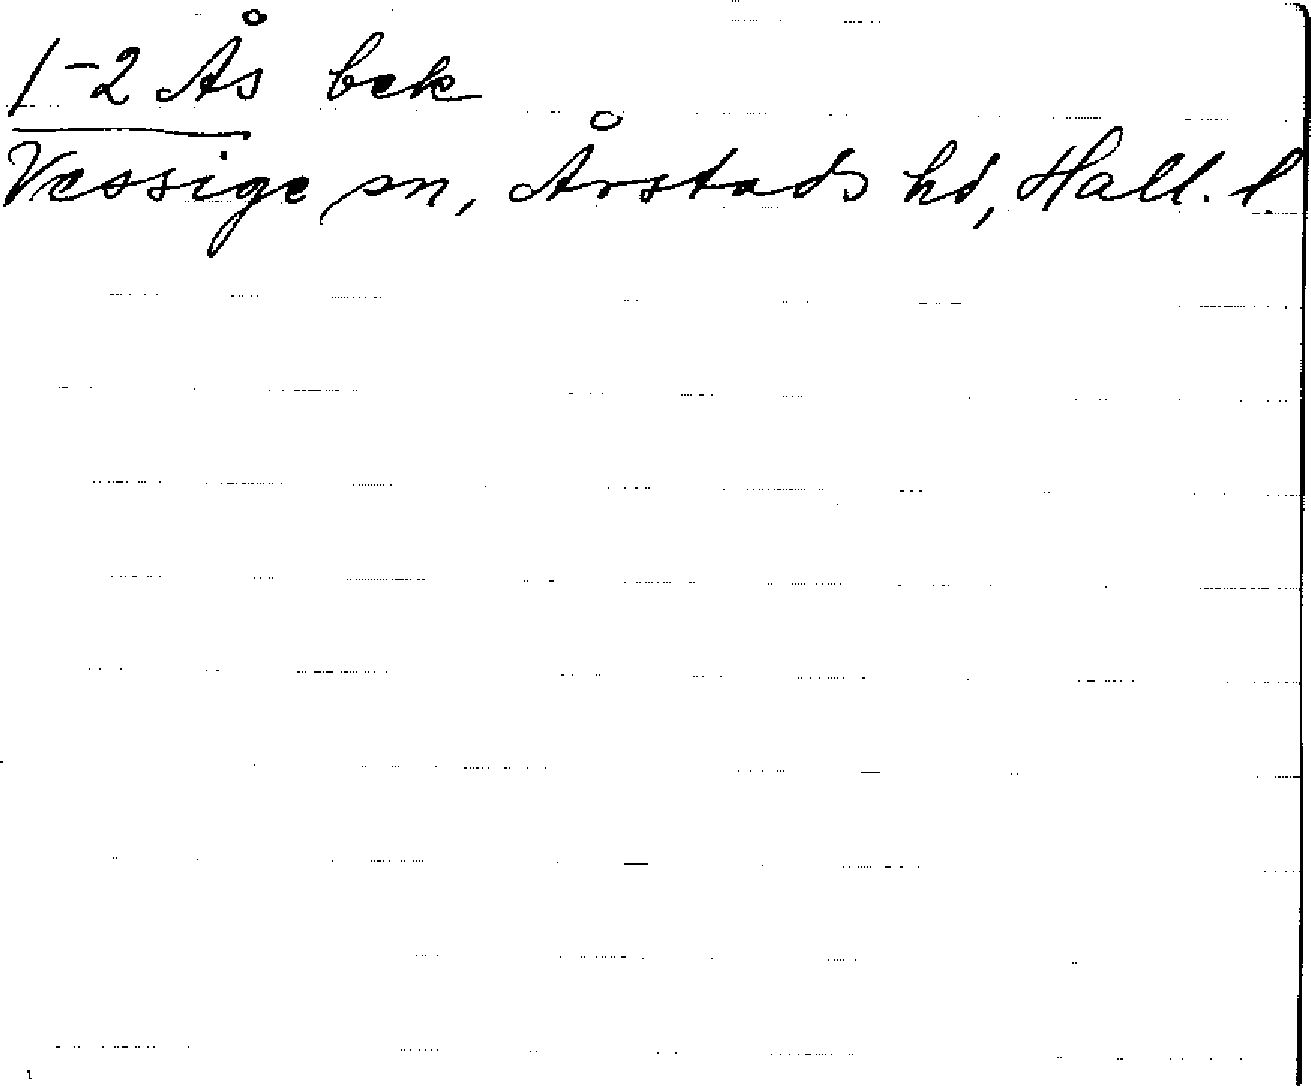 1-2 Ås bek
Vessige sn, Årstads hd, Hall. l.